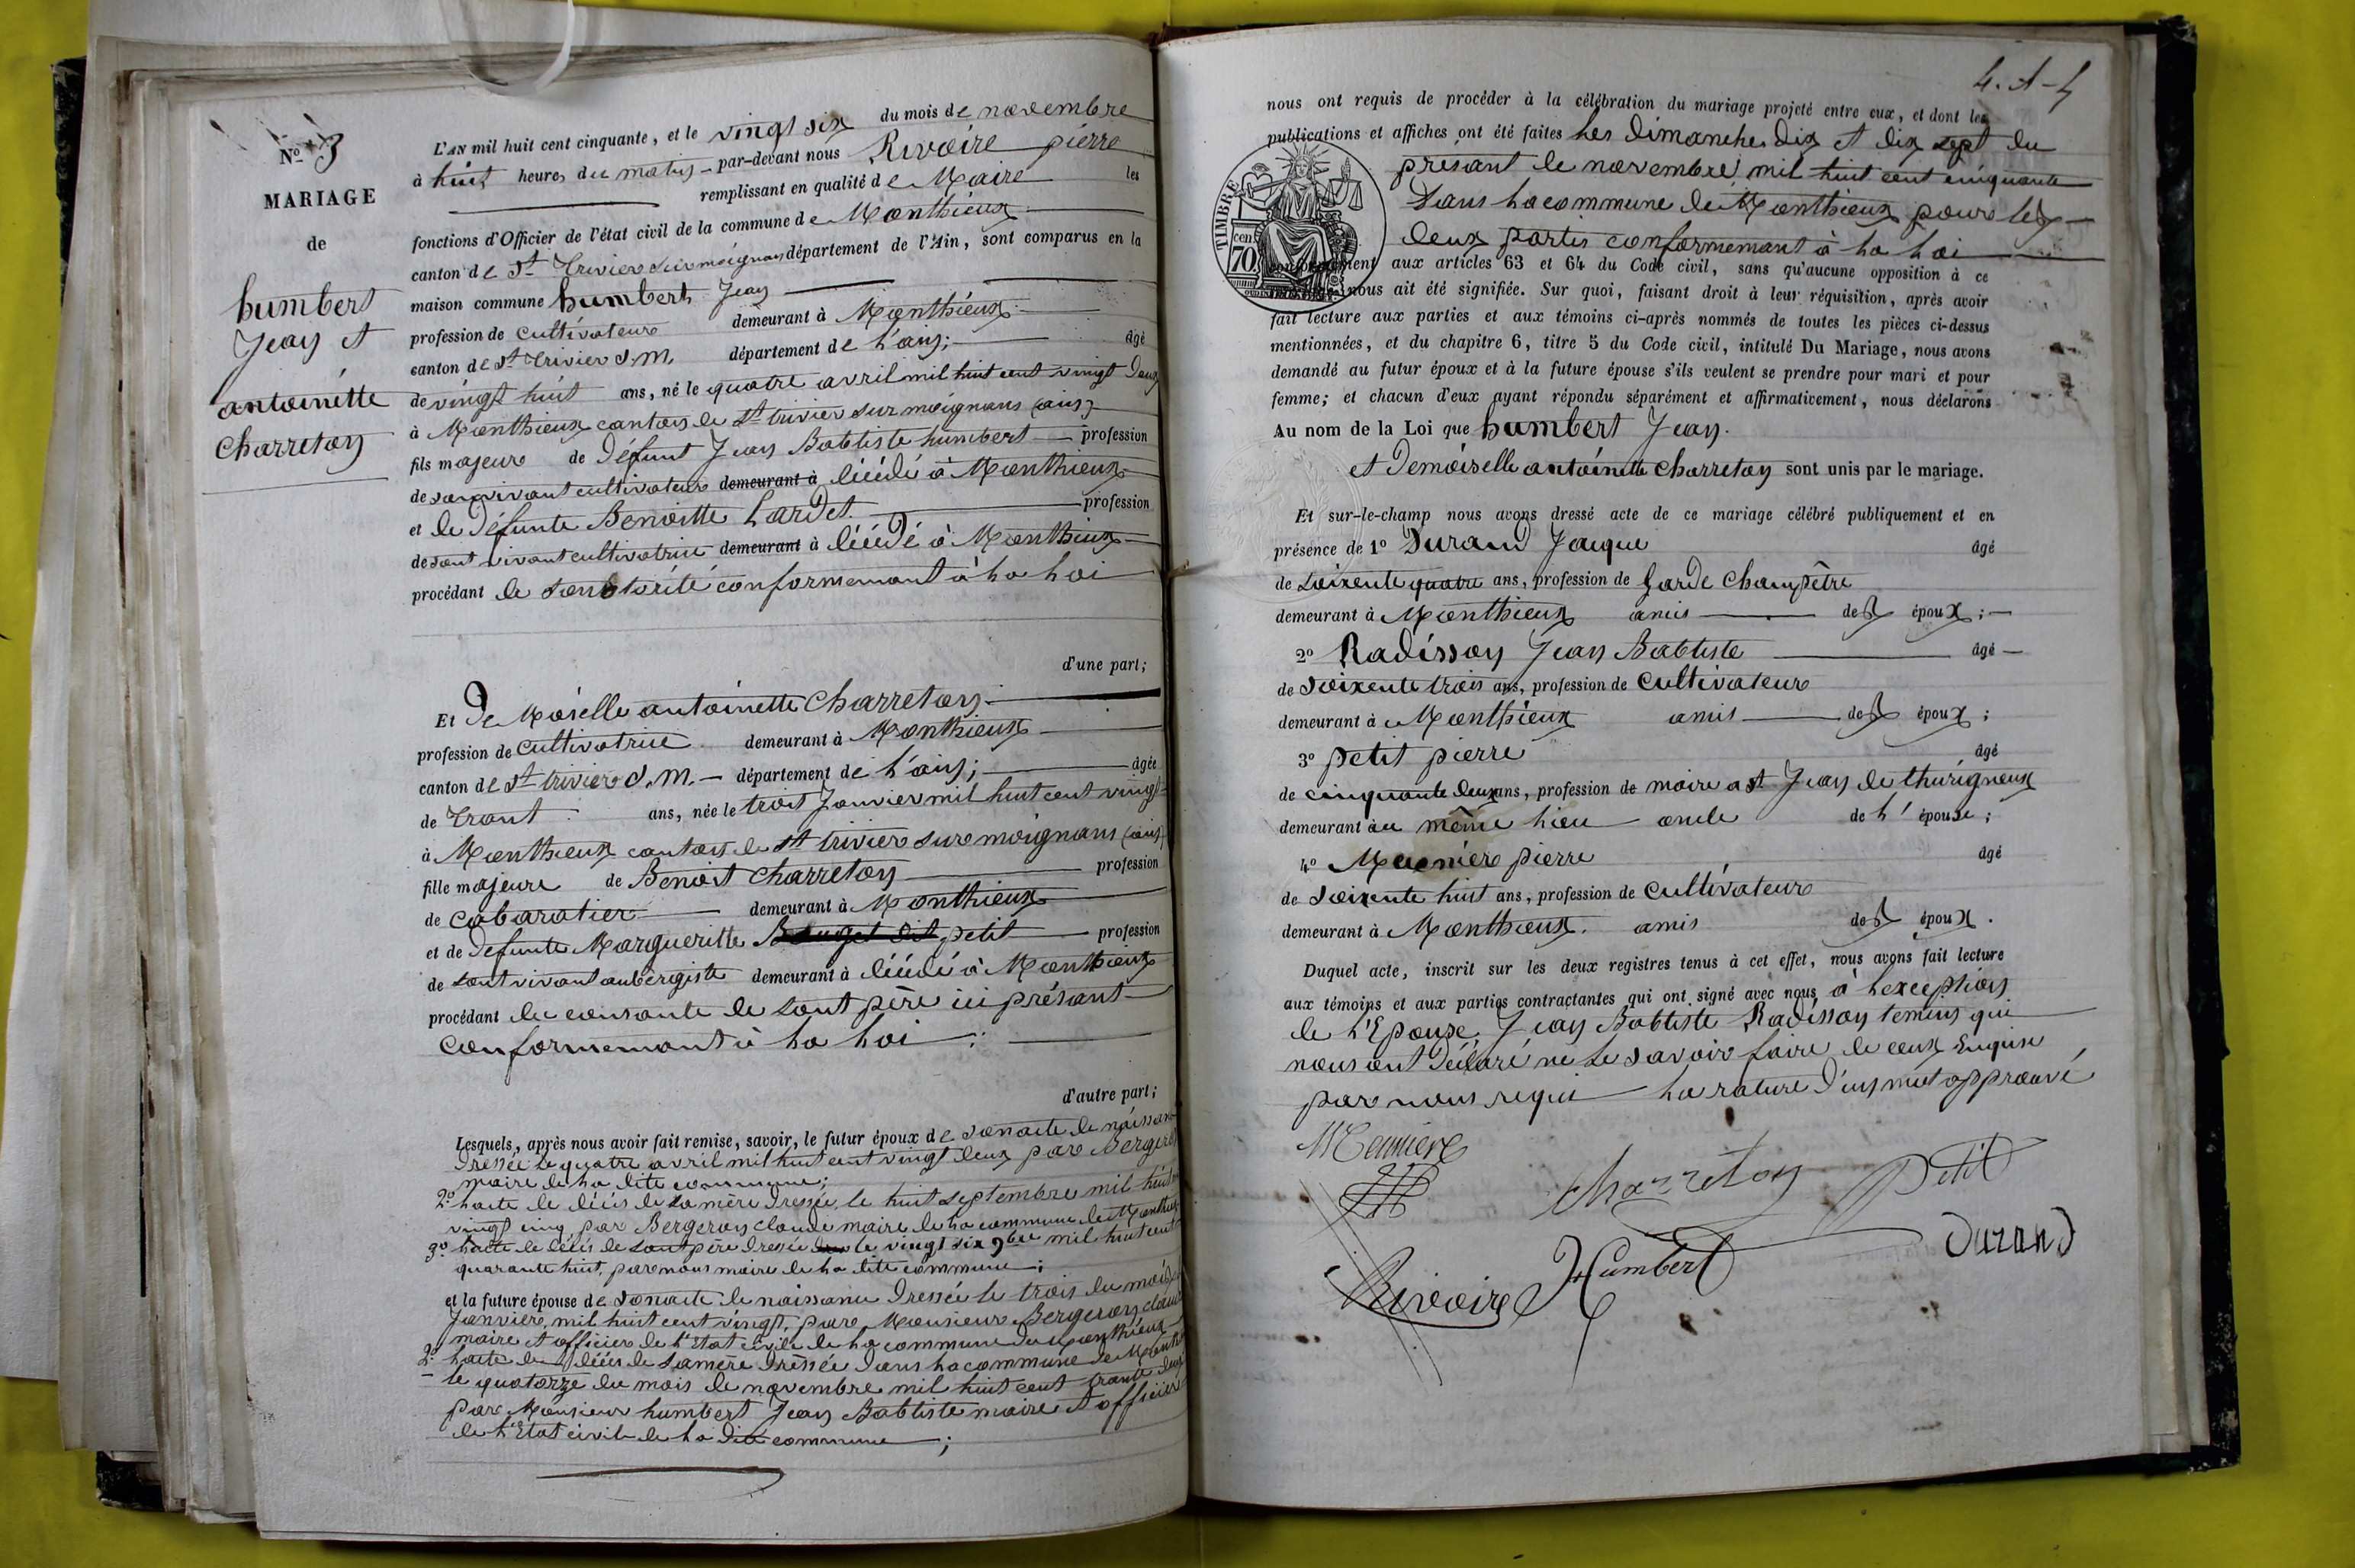 N.º 3
MARIAGE
de
humbert
Jean et
antoinette
Charreton
L'AN mil huit cent cinquante, et le vingt six du mois de novembre
à huit heures du matin par-devant nous Rivoire pierre
remplissant en qualité de Maire les
fonctions d'Officier de l'état civil de la commune de Monthieux
canton de St Trivier sur moignans département de l'Ain, sont comparus en la
maison commune humbert Jean
profession de cultivateur demeurant à Monthieux
canton de St Trivier S. M. département de l'ain; âgé
de vingt huit ans, né le quatre avril mil huit cent vingt deux
à Monthieux canton de St trivier sur moignans (ain)
fils majeur de défunt Jean Babtiste humbert profession
de son vivant cultivateur demeurant à décédé à Monthieux
et de défunte Benoitte Lardet profession
de sont vivant cultivatrice demeurant à décédé à Monthieux
procédant de son otorité conformemant à la loi
d'une part;
Et DeMoiselle antoinette Charreton
profession de cultivatrice demeurant à Monthieux
canton de St trivier S. M. département de l'ain; âgée
de trant ans, née le trois Janvier mil huit cent vingt
à Monthieux canton de St trivier sur moignans (ain)
fille majeure de Benoit Charreton profession
de cabaratier demeurant à Monthieux
et de defunte Margueritte petit profession
de sont vivant aubergiste demeurant à décédé à Monthieux
procédant du consante de sont père ici présant
conformemant à la loi
d'autre part;
Lesquels, après nous avoir fait remise, savoir, le futur époux de son acte de naissance
dressée le quatre avril mil huit cent vingt deux par Bergeron
maire de la dite commune;
2º lacte de décès de sa mère dressée le huit septembre mil huit
vingt cinq par Bergeron claude maire de la commune de Monthieux
3º lacte de décès de sont père dressée le vingt six 9bre mil huit cent
quarante huit, par nous maire de la dite commune;
et la future épouse de son acte de naissance dressée le trois du mois de
Janvier, mil huit cent vingt, par Monsieur Bergeron claude
maire et officier de l'Etat civile de la commune de Monthieux
2º lacte de décès de sa mère dressée dans la commune de Monthieux
le quatorze du mois de novembre mil huit cent trante deux
par Monsieur humbert Jean Babtiste maire et officier
de l'Etat civil de la dite commune;
4. A-4
nous ont requis de procéder à la célébration du mariage projeté entre eux, et dont les
publications et affiches ont été faites les dimanche dix et dix sept du
présant de novembre mil huit cent cinquante
Dans la commune de Monthieux pour les
deux partis conformemant à la loi
TIMBRE
70
cen
conformément aux articles 63 et 64 du Code civil, sans qu'aucune opposition à ce
nous ait été signifiée. Sur quoi, faisant droit à leur réquisition, après avoir
fait lecture aux parties et aux témoins ci-après nommés de toutes les pièces ci-dessus
mentionnées, et du chapitre 6, titre 5 du Code civil, intitulé Du Mariage, nous avons
demandé au futur époux et à la future épouse s'ils veulent se prendre pour mari et pour
femme; et chacun d'eux ayant répondu séparément et affirmativement, nous déclarons
Au nom de la Loi que humbert Jean
et Demoiselle antoinette Charreton sont unis par le mariage.
Et sur-le-champ nous avons dressé acte de ce mariage célébré publiquement et en
présence de 1º Durand Jacque âgé
de soixente quatre ans, profession de Garde Champêtre
demeurant à Monthieux amis des époux;
2º Radisson Jean Babtiste âgé
de soixente trois ans, profession de cultivateur
demeurant à Monthieux amis des époux;
3º petit pierre âgé
de cinquante deux ans, profession de maire a St Jean de thurigneux
demeurant au même lieu oncle de l'épouse;
4º Meunière pierre âgé
de soixente huit ans, profession de cultivateur
demeurant à Monthieux. amis des époux.
Duquel acte, inscrit sur les deux registres tenus à cet effet, nous avons fait lecture
aux témoins et aux parties contractantes qui ont signé avec nous à lexception
de l'Epouse, Jean Babtiste Radisson temins qui
nous ont déclaré ne le savoir faire de ceux Enquis
par nous requi la rature d'un mot approuvé
Meunière
Charreton
Petit
Durand
Rivoire
Humbert